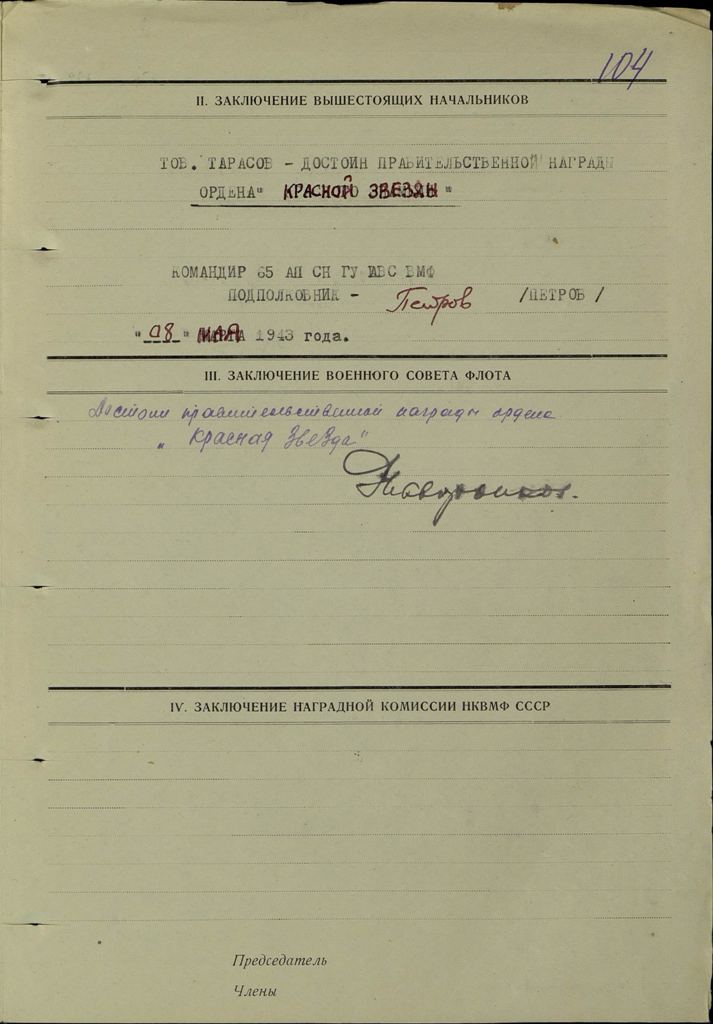 104
II. ЗАКЛЮЧЕНИЕ ВЫШЕСТОЯЩИХ НАЧАЛЬНИКОВ
ТОВ. ТАРАСОВ – ДОСТОИН ПРАВИТЕЛЬСТВЕННОЙ НАГРАДЫ
ОРДЕНА" КРАСНОЙ ЗВЕЗДЫ "
КОМАНДИР 65 АП СН ГУ ВВС ВМФ
ПОДПОЛКОВНИК – Петров /ПЕТРОВ /
"08" МАЯ 1943 года.
III. ЗАКЛЮЧЕНИЕ ВОЕННОГО СОВЕТА ФЛОТА
Достоин правительственной награды ордена
„Красная Звезда"
IV. ЗАКЛЮЧЕНИЕ НАГРАДНОЙ КОМИССИИ НКВМФ СССР
Председатель
Члены